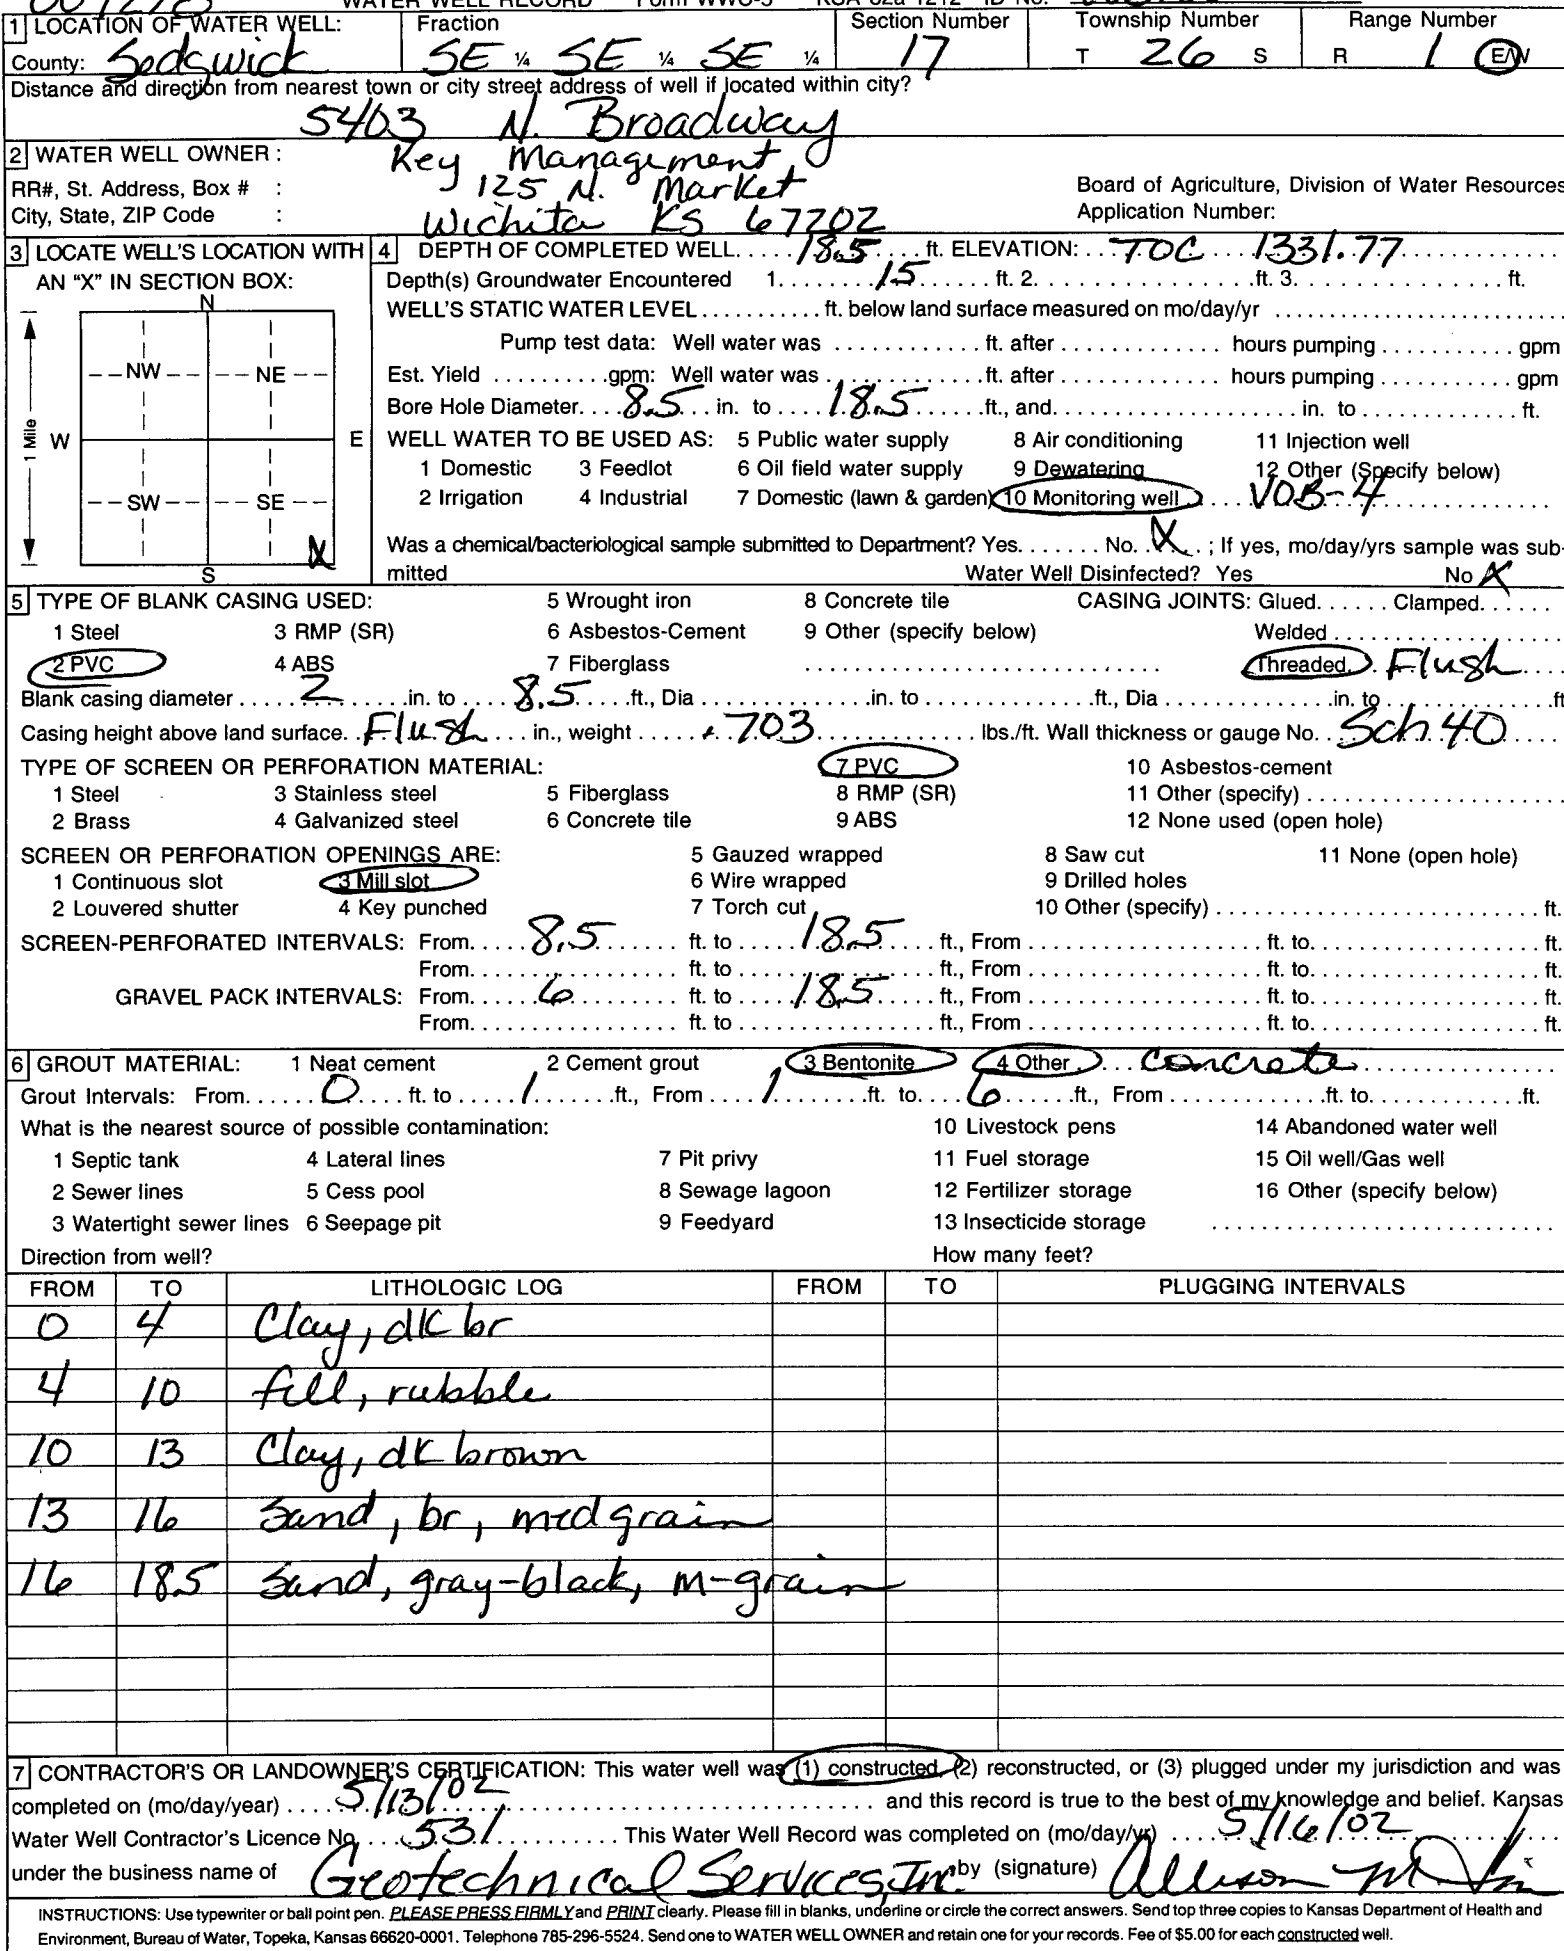 WATER WELL RECORD Form WWC-5 KSA 82a-1212 ID No.
1 LOCATION OF WATER WELL: Fraction Section Number Township Number Range Number
County: Sedgwick SE ¼ SE ¼ SE ¼ 17 T 26 S R 1 E/W
Distance and direction from nearest town or city street address of well if located within city?
5403 N. Broadway
2 WATER WELL OWNER: Key Management
RR#, St. Address, Box # : 125 N. Market Board of Agriculture, Division of Water Resources
City, State, ZIP Code : Wichita KS 67202 Application Number:
3 LOCATE WELL'S LOCATION WITH 4 DEPTH OF COMPLETED WELL.....18.5....ft. ELEVATION: TOC 1331.77
AN "X" IN SECTION BOX: Depth(s) Groundwater Encountered 1.......15.......ft. 2...............ft. 3...............ft.
N
WELL'S STATIC WATER LEVEL..........ft. below land surface measured on mo/day/yr
Pump test data: Well water was ............ft. after ............. hours pumping ...........gpm
NW NE
Est. Yield .........gpm: Well water was ............ft. after ............. hours pumping ...........gpm
Bore Hole Diameter....8.5...in. to....18.5......ft., and....................in. to ................ft.
1 Mile W E WELL WATER TO BE USED AS: 5 Public water supply 8 Air conditioning 11 Injection well
1 Domestic 3 Feedlot 6 Oil field water supply 9 Dewatering 12 Other (Specify below)
SW SE 2 Irrigation 4 Industrial 7 Domestic (lawn & garden) 10 Monitoring well VOB-4
X
Was a chemical/bacteriological sample submitted to Department? Yes.......No..X...; If yes, mo/day/yrs sample was sub-
S mitted Water Well Disinfected? Yes No X
5 TYPE OF BLANK CASING USED: 5 Wrought iron 8 Concrete tile CASING JOINTS: Glued......Clamped......
1 Steel 3 RMP (SR) 6 Asbestos-Cement 9 Other (specify below) Welded
2 PVC 4 ABS 7 Fiberglass Threaded. Flush
Blank casing diameter......2......in. to......8.5....ft., Dia ................in. to ................ft., Dia ................in. to ................ft
Casing height above land surface..Flush...in., weight .703 lbs./ft. Wall thickness or gauge No. Sch 40
TYPE OF SCREEN OR PERFORATION MATERIAL: 7 PVC 10 Asbestos-cement
1 Steel 3 Stainless steel 5 Fiberglass 8 RMP (SR) 11 Other (specify)
2 Brass 4 Galvanized steel 6 Concrete tile 9 ABS 12 None used (open hole)
SCREEN OR PERFORATION OPENINGS ARE: 5 Gauzed wrapped 8 Saw cut 11 None (open hole)
1 Continuous slot 3 Mill slot 6 Wire wrapped 9 Drilled holes
2 Louvered shutter 4 Key punched 7 Torch cut 10 Other (specify) ft.
SCREEN-PERFORATED INTERVALS: From.....8.5.......ft. to.....18.5....ft., From ....................ft. to................ft.
From..................ft. to ..................ft., From ....................ft. to................ft.
GRAVEL PACK INTERVALS: From.....6.......ft. to.....18.5....ft., From ....................ft. to................ft.
From..................ft. to ..................ft., From ....................ft. to................ft.
6 GROUT MATERIAL: 1 Neat cement 2 Cement grout 3 Bentonite 4 Other Concrete
Grout Intervals: From......0....ft. to.....1......ft., From....1......ft. to....6......ft., From................ft. to................ft.
What is the nearest source of possible contamination: 10 Livestock pens 14 Abandoned water well
1 Septic tank 4 Lateral lines 7 Pit privy 11 Fuel storage 15 Oil well/Gas well
2 Sewer lines 5 Cess pool 8 Sewage lagoon 12 Fertilizer storage 16 Other (specify below)
3 Watertight sewer lines 6 Seepage pit 9 Feedyard 13 Insecticide storage
Direction from well? How many feet?
FROM TO LITHOLOGIC LOG FROM TO PLUGGING INTERVALS
0 4 Clay, dk br
4 10 fill, rubble
10 13 Clay, dk brown
13 16 Sand, br, med grain
16 18.5 Sand, gray-black, m-grain
7 CONTRACTOR'S OR LANDOWNER'S CERTIFICATION: This water well was (1) constructed, (2) reconstructed, or (3) plugged under my jurisdiction and was
completed on (mo/day/year) 5/13/02 and this record is true to the best of my knowledge and belief. Kansas
Water Well Contractor's Licence No. 531 This Water Well Record was completed on (mo/day/yr) 5/16/02
under the business name of Geotechnical Services, Inc. by (signature) Allison
INSTRUCTIONS: Use typewriter or ball point pen. PLEASE PRESS FIRMLY and PRINT clearly. Please fill in blanks, underline or circle the correct answers. Send top three copies to Kansas Department of Health and
Environment, Bureau of Water, Topeka, Kansas 66620-0001. Telephone 785-296-5524. Send one to WATER WELL OWNER and retain one for your records. Fee of $5.00 for each constructed well.